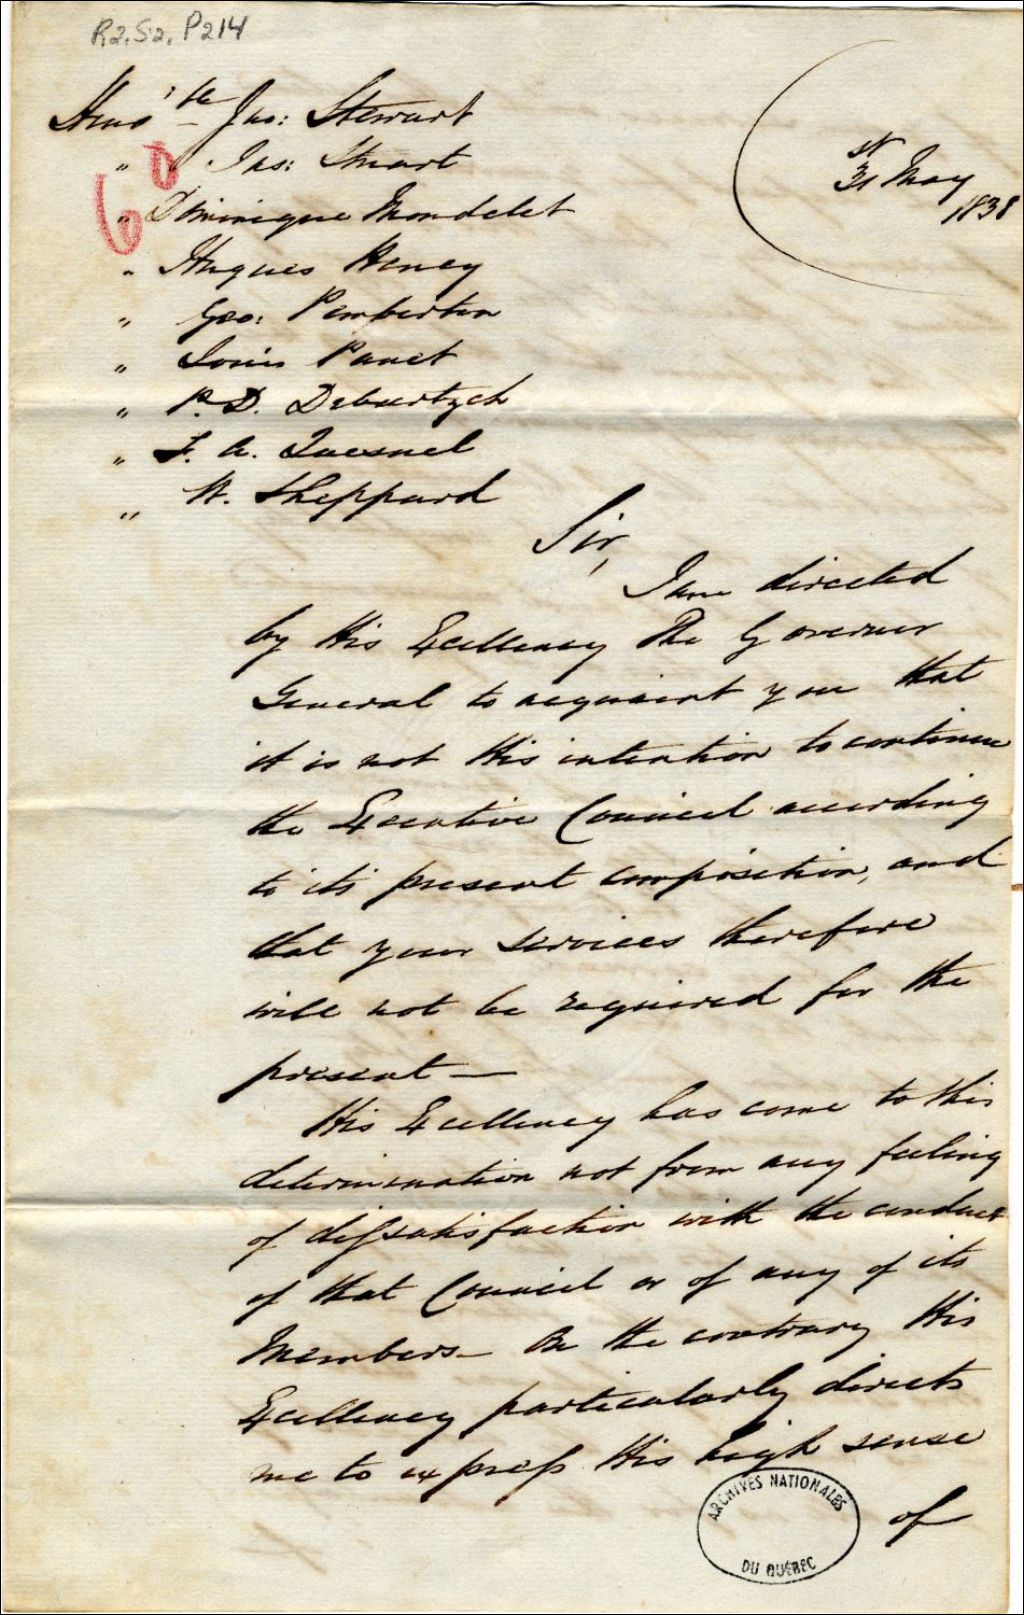 R2, S2, P214
Hono'ble Jno: Stewart
" Jas: Stuart
60
" Dominique Mondelet
" Hugues Heney
" Geo: Pemberton
" Louis Panet
" P. D. Debartzch
" F. A. Quesnel
" W. Sheppard
31st May
1838
Sir,
I am directed
by His Excellency The Governor
General to acquaint you that
it is not His intention to continue
the Executive Council according
to its present composition, and
that your services therefore
will not be required for the
present —
His Excellency has come to this
determination not from any feeling
of dissatisfaction with the conduct
of that Council or of any of its
Members — On the contrary His
Excellency particularly directs
me to express His high sense
of
ARCHIVES NATIONALES
DU QUÉBEC